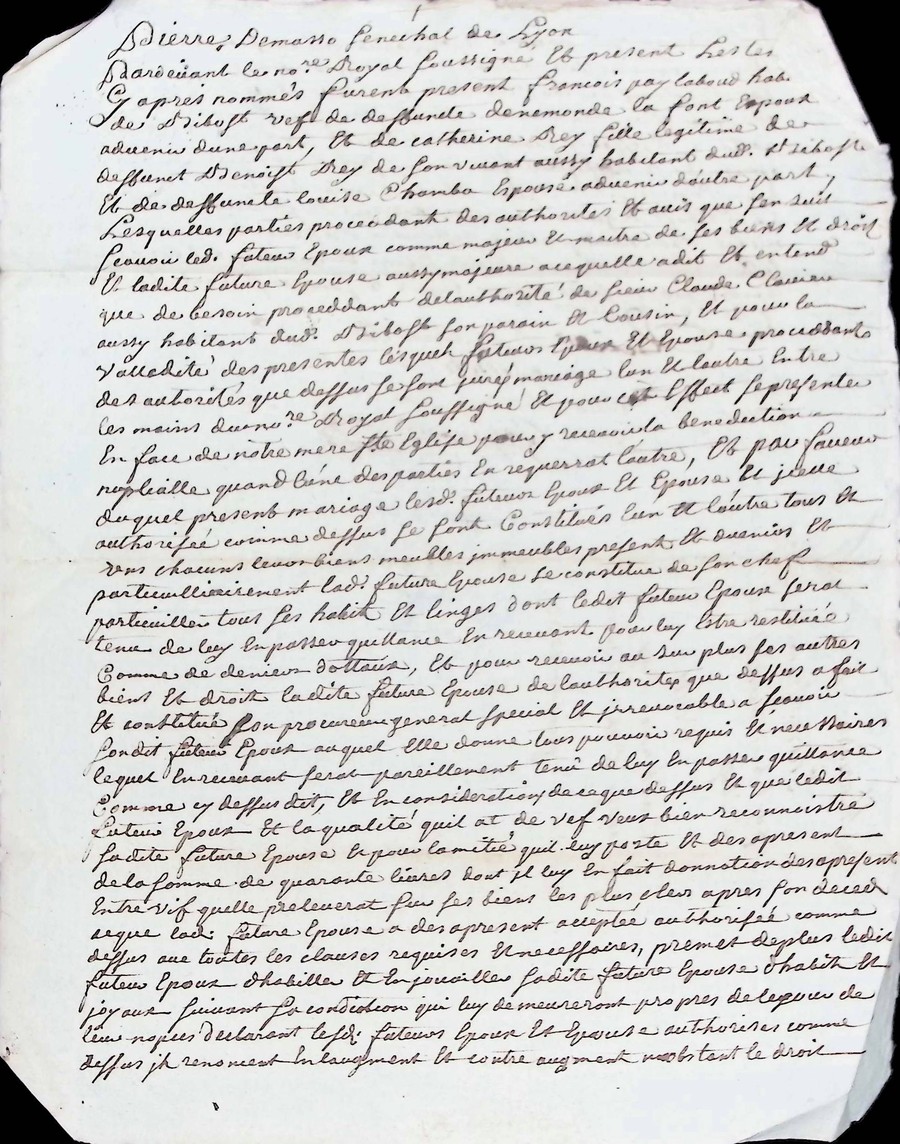 Pierre Demasso Senechal de Lyon
Pardevant le no.re Royal soussigné Et present Les tes
Cy apres nommés furent present francois pay laboud hab.
de Ribost vef de deffuncte denemonde la font Epoux
advenir dune part, Et de catherine Rey fille legitime de
deffunct Benoist Rey de son vivant aussy habitant dud. Ribost
Et de deffuncte louise Chamba Epouse advenir d'autre part,
Lesquelles parties procedant des authorités Et avis que sen suit
scavoir led. futeur Epoux comme majeur Et maitre de ses biens Et droit
Et ladite future Epouse aussy majeure acequelle a dit Et entend
que de besoin proceddant delauthorité de sieur Claude Clavier
aussy habitant dud. Ribost son parain Et Cousin, Et pour la
vallodité des presentes lesquels futeurs Epoux Et Epouse proceddant
des authorités que dessus se sont jurés mariage lun Et lautre Entre
les mains dud no.re Royal soussigné Et pour cet Effect se presenter
En face de notre mere s.te Eglise pour y recevoir la benediction
nuptialle quand l'une des parties En requerrat l'autre, Et par faveur
duquel present mariage lesd. futeurs Epoux Et Epouse Et jcelle
authorisée comme dessus se sont Constitués lun Et l'autre tous Et
uns chacuns leurs biens meubles jmmeubles present Et avenirs Et
particuillierement lad. future Epouse se constitue de son chef
particuillier tous ses habit Et linges dont ledit futeur Epoux serat
tenu de luy En passer quittance En recevant pour luy Estre restituée
Comme de deniers dottaux, Et pour recevoir au sur plus ses autres
bient Et droit ladite future Epouse de lauthorité que dessus a fait
Et constitué son procureur general special Et jrrevocable a scavoir
sondit futeur Epoux auquel Elle donne tous pouvoir requis Et necessaires
lequel En recevant serat pareillement tenu de luy En passer quittance
Comme cy dessus dit, Et En consideration de ce que dessus Et que ledit
futeur Epoux Et la qualité quil at de vef veux bien reconnoistre
sadite future Epouse Et pour lamitié quil luy porte Et des apresent
de la somme de quarante livres dont jl luy En fait donnation des apresent
Entre vif quelle preleverat sur ses biens les plus cler apres son deced
aeque lad. future Epouse a des apresent acceptée authorisée comme
dessus ave toutes les clauses requises Et necessaires, promet de plus ledit
futeur Epoux d'habiller Et En jouailler sadite future Epouse d'habit Et
joyaux suivant sa condiction qui luy demeureront propres de lejour de
leur nopces declarant lesd. futeurs Epoux Et Epouse authorises comme
dessus jls renoncent En laugment Et contre augment nobstant le droit